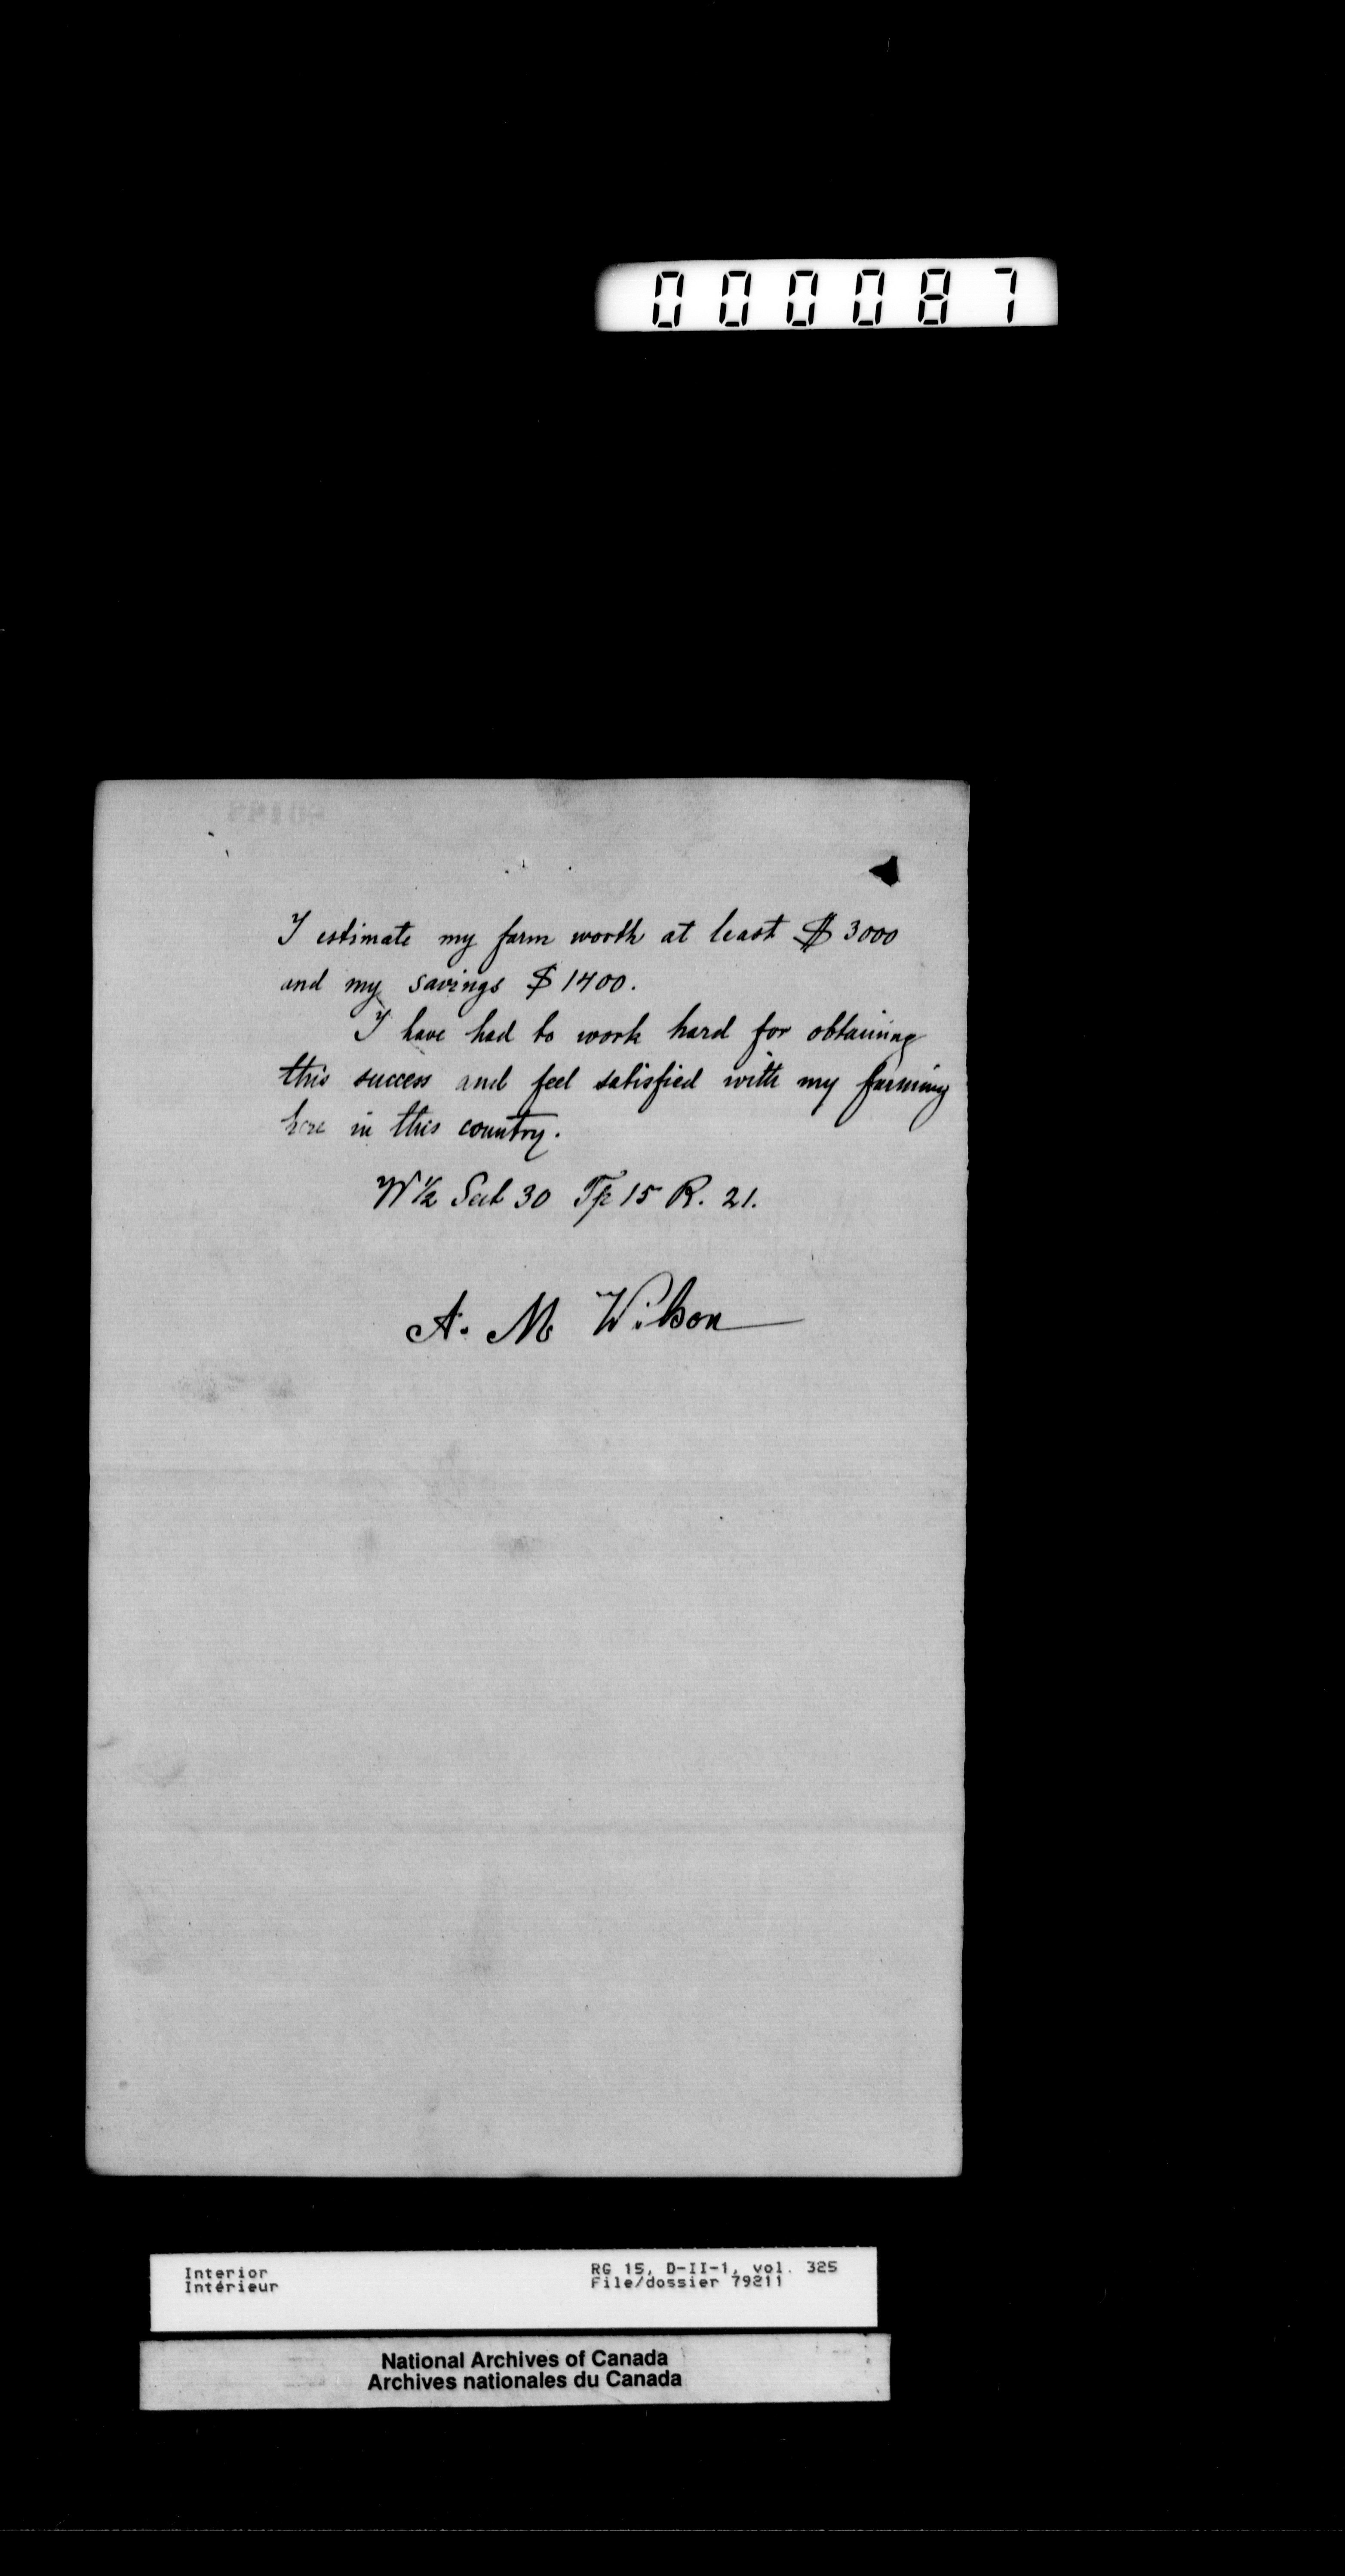 000087
I estimate my farm worth at least $ 3000
and my savings $ 1400.
I have had to work hard for obtaining
this success and feel satisfied with my farming
here in this country.
W ½ Sect 30 Tp 15 R. 21.
A. M Wilson
Interior
Intérieur
RG 15, D-II-1, vol. 325
File/dossier 79211
National Archives of Canada
Archives nationales du Canada